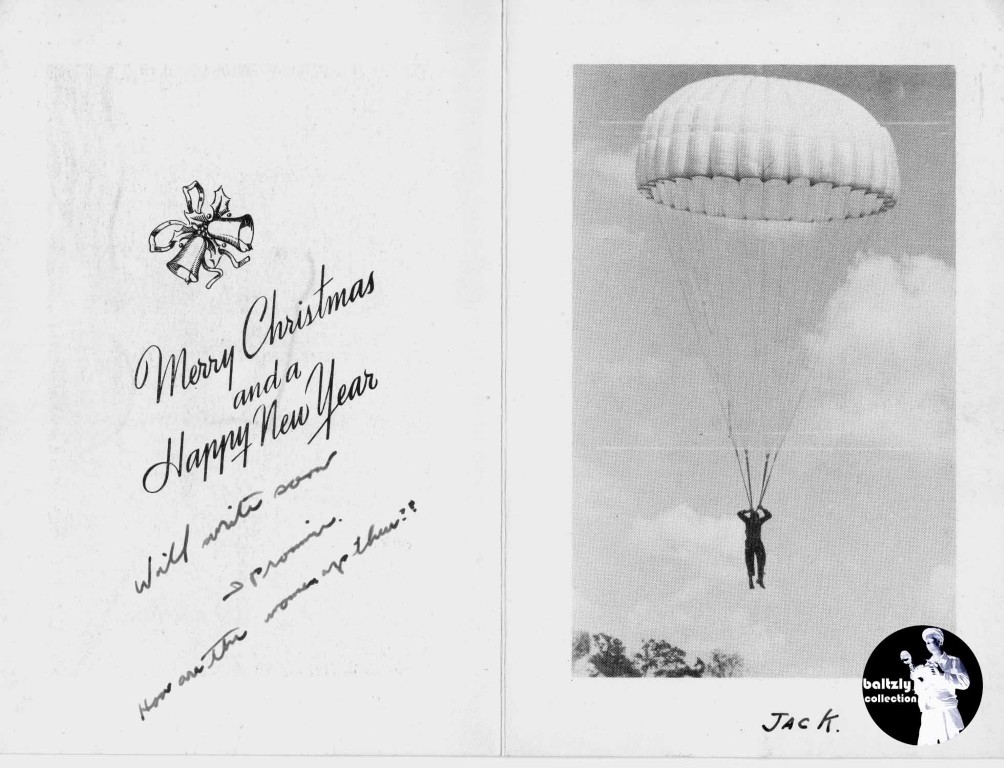 Merry Christmas
and a
Happy New Year
Will write soon
I promise.
How are the women up there??
JACK.
baltzly
collection